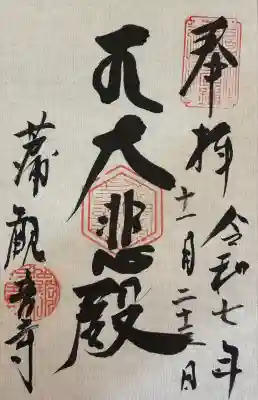 奉拝
令和七年
十一月二十三日
大悲殿
蒲觀音寺